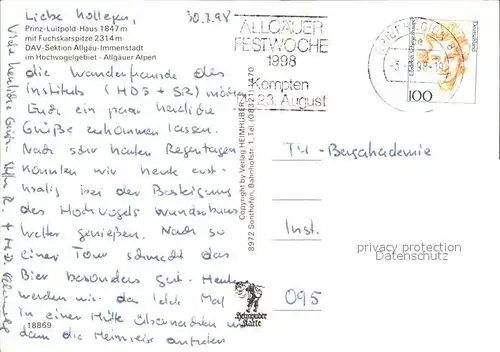 Liebe Kollegen,
30.7.98
Prinz-Luitpold-Haus 1847 m
mit Fuchskarspitze 2314 m
DAV-Sektion Allgäu-Immenstadt
im Hochvogelgebiet - Allgäuer Alpen
die Wanderfreunde des
Instituts (HDS + SR) möchten
Euch ein paar herzliche
Grüße zukommen lassen.
Nach sehr harten Regentagen
konnten wir heute erst-
bei der Besteigung
des Hochvogels
Wetter genießen. Nach so
einer Tour schmeckt das
Bier besonders gut. Heute
werden wir das letzte Mal
in einer Hütte übernachten und
dann die Heimreise antreten
18869
Viele herzliche Grüße
Copyright by Verlag HEIMHUBER
8972 Sonthofen, Bahnhofstr. 1, Tel. (08321)
ALLGÄUER
FESTWOCHE
1998
Kempten
23. August
BRIEFREGION
Deutschland
100
TU-Bergakademie
Inst.
095
Heimhuber
Karte
privacy protection
Datenschutz